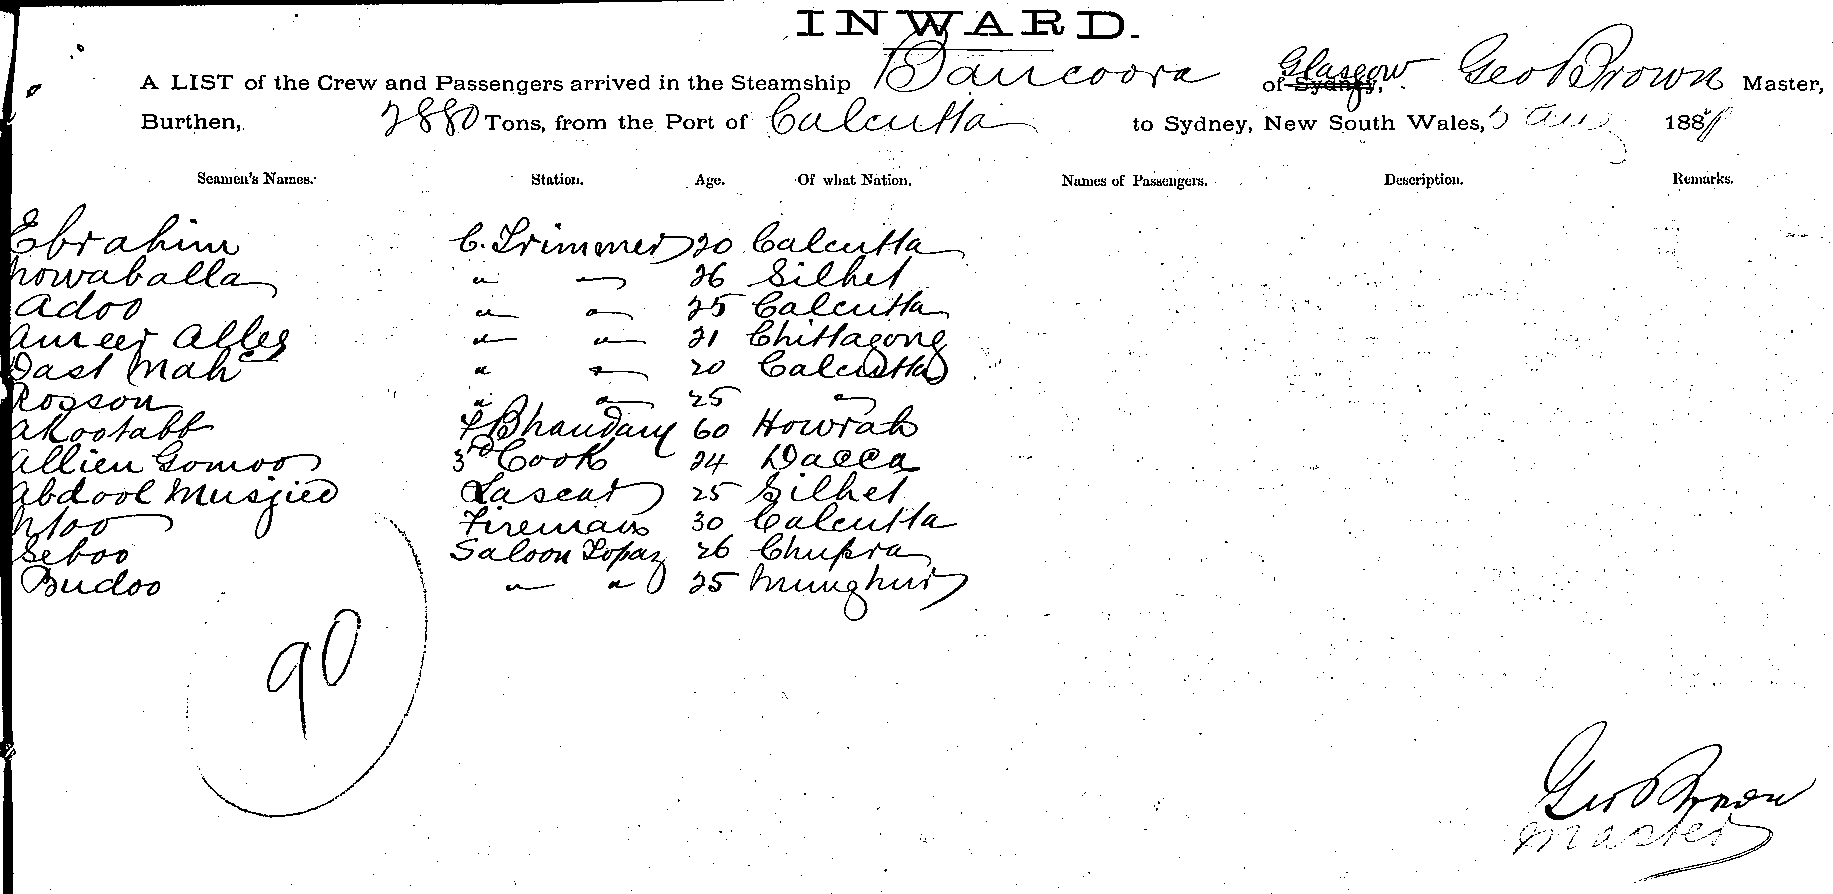 INWARD.
A LIST of the Crew and Passengers arrived in the Steamship Bancoora of Sydney, Glasgow Geo Brown Master,
Burthen, 2880 Tons, from the Port of Calcutta to Sydney, New South Wales, 5 Aug 188
Seamen's Names. Station. Age. Of what Nation. Names of Passengers. Description. Remarks.
Ebrahim C. Trimmer 20 Calcutta
Nowaballa " " 26 Silhet
Adoo " " 25 Calcutta
Ameer Alley " " 21 Chittagong
Dast Mah " " 20 Calcutta
Rosson " " 25 "
Akootabb Bhandary 60 Howrah
Allien Gomoo 3rd Cook 24 Dacca
Abdool Musjied Lascar 25 Silhet
Fireman 30 Calcutta
Seboo Saloon Topaz 26 Chupra
Budoo " " 25 Munghur
90
Geo Brown
Master